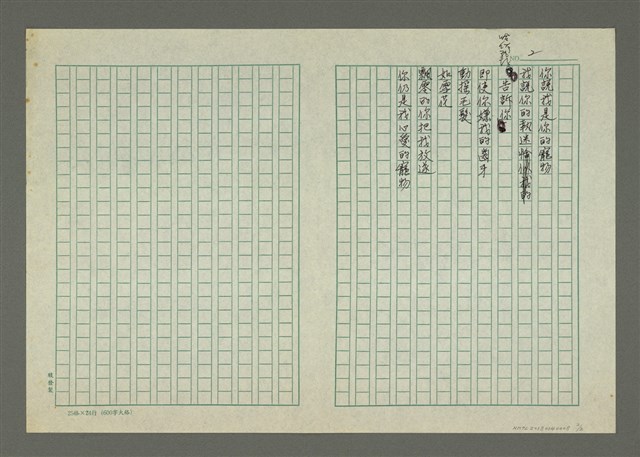 NO. 2
你說我是你的寵物
我說你的敘述
告訴你
即使你嫌我的齒牙
動搖毛髮
如雪花
飄零的你把我放逐
你仍是我心愛的寵物
25格×24行 (600字大格)